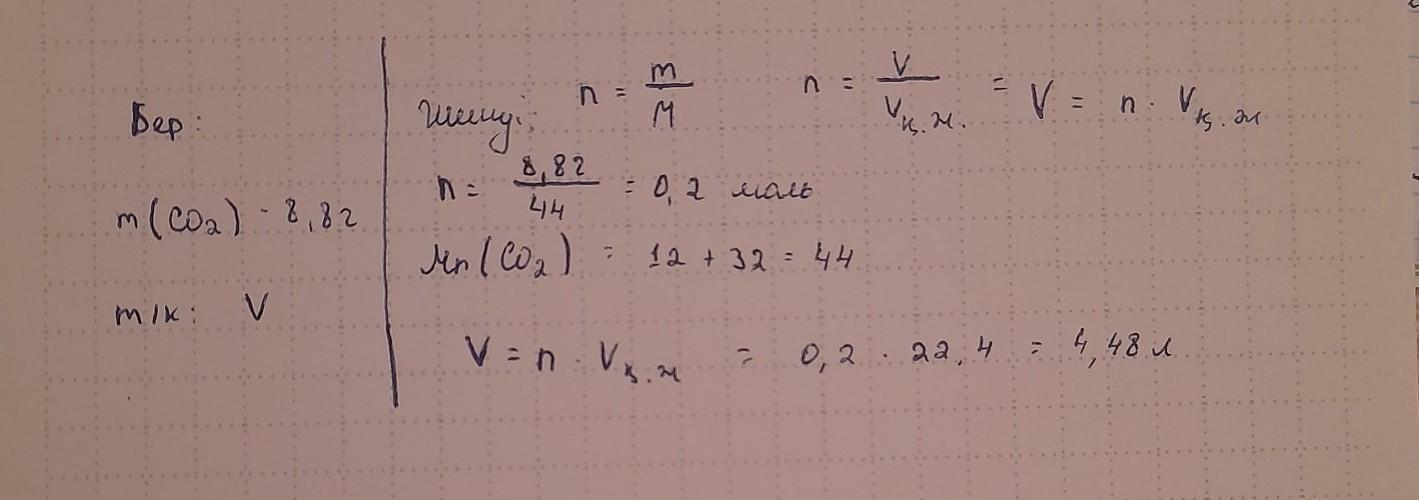 Бер:
m(CO₂) - 8,8г
т/к: V
Шешуі: n = m/M n = V/Vқ.ж. = V = n · Vқ.ж
n = 8,8г/44 = 0,2 моль
Mr(CO₂) = 12 + 32 = 44
V = n · Vқ.ж = 0,2 · 22,4 = 4,48 л